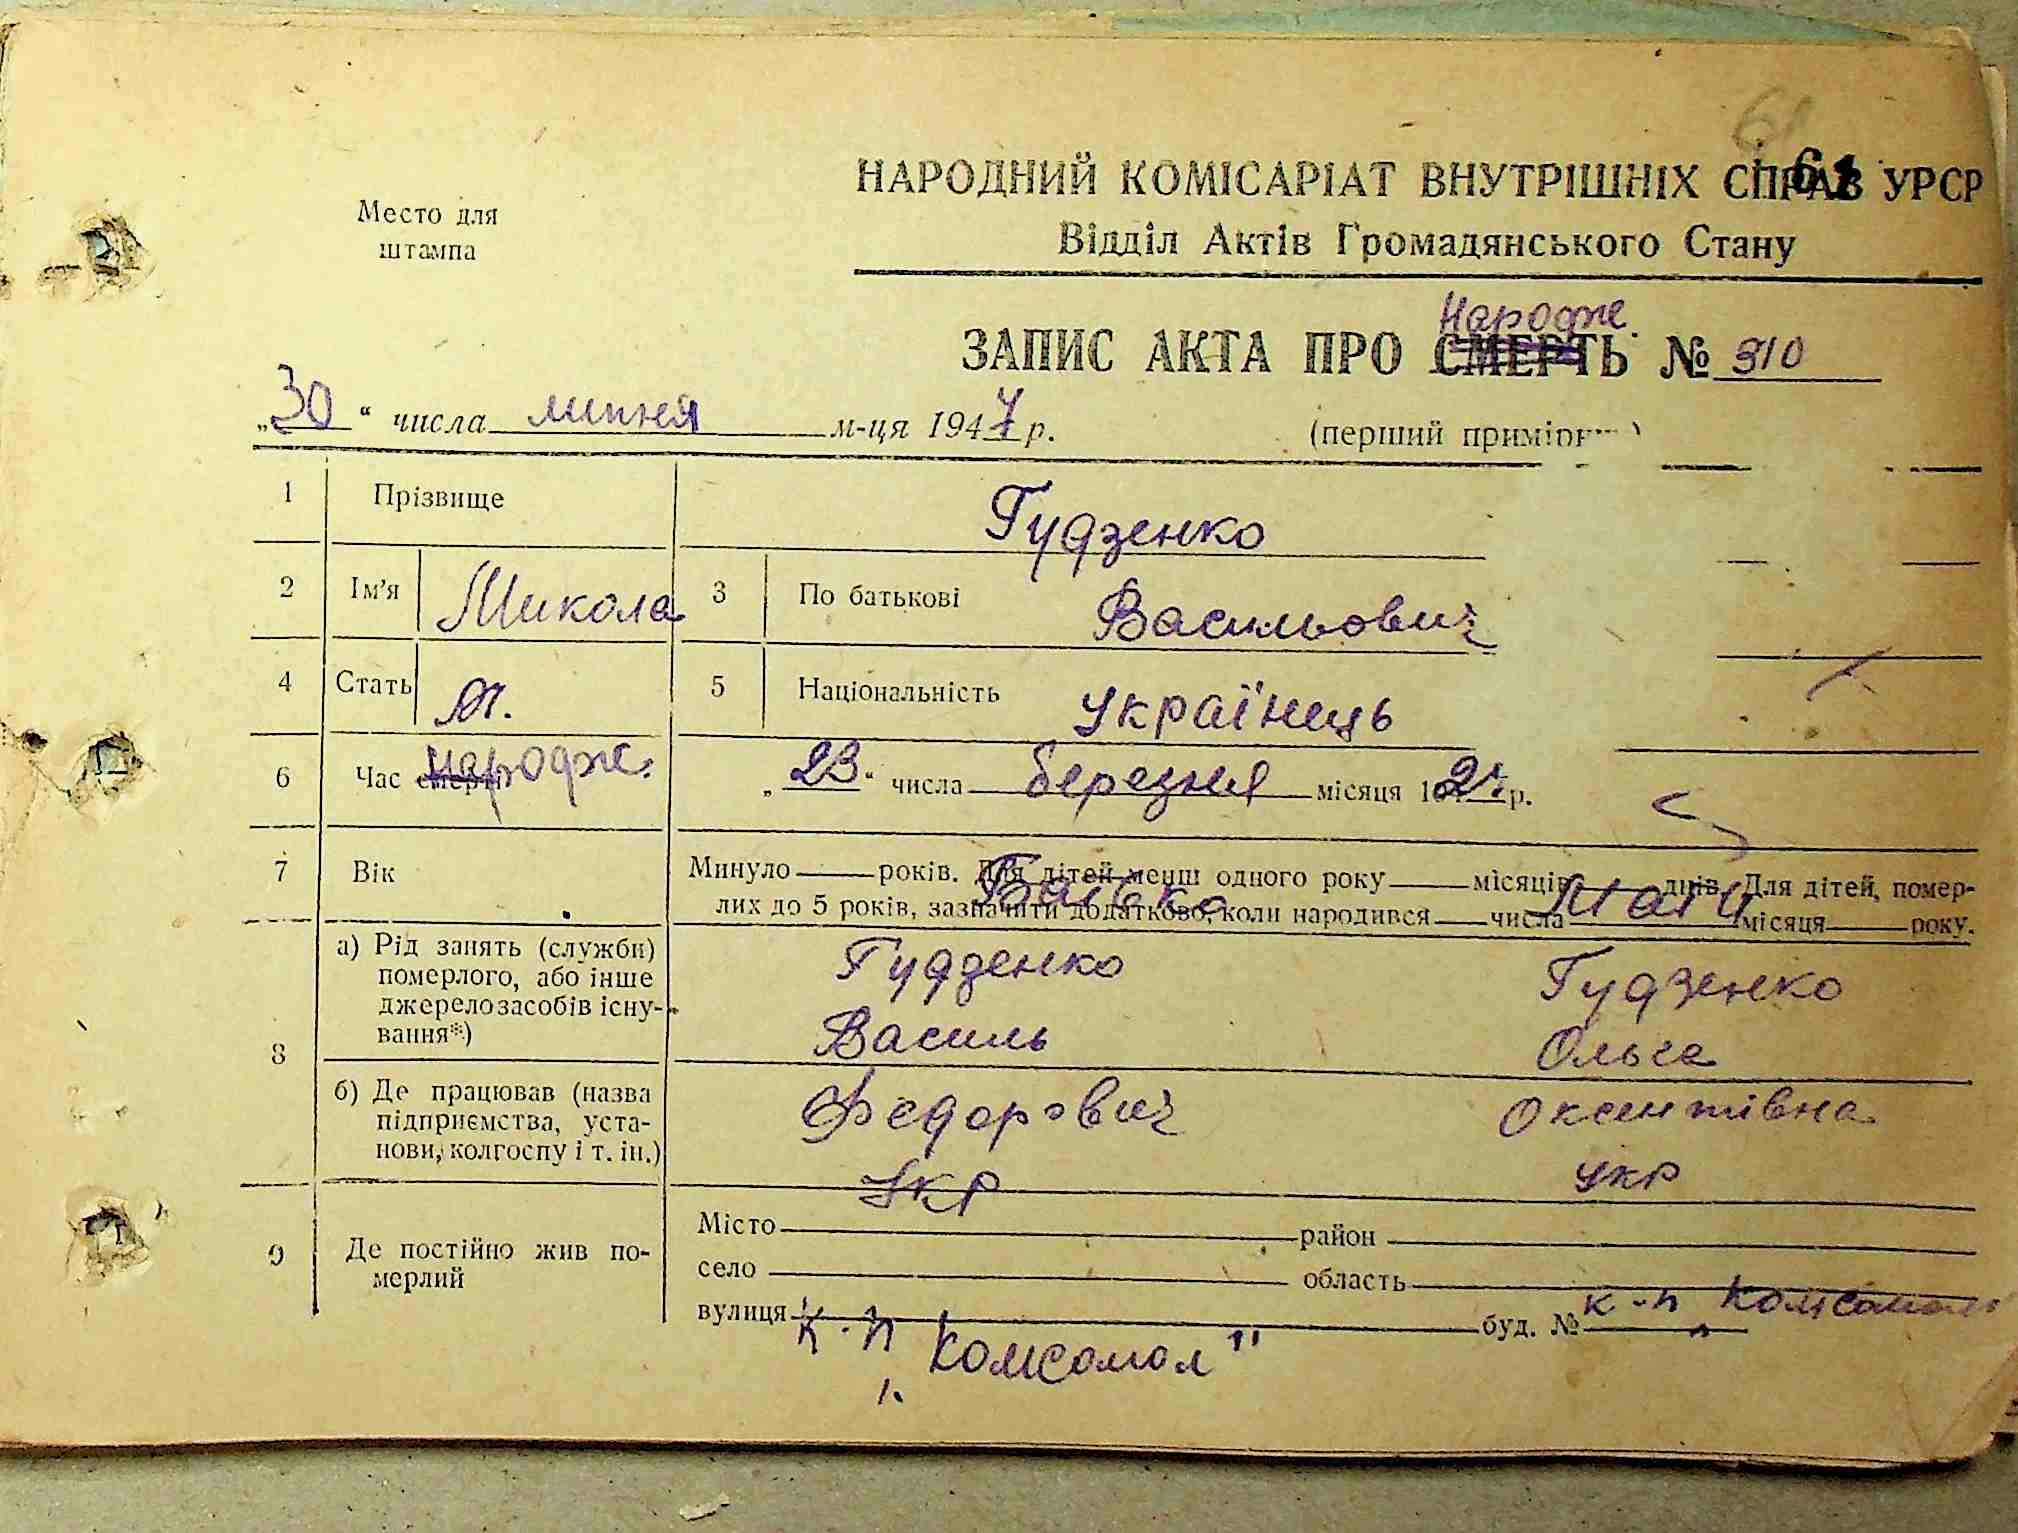 61
НАРОДНИЙ КОМІСАРІАТ ВНУТРІШНІХ СПРАВ УРСР
61
Место для
штампа
Відділ Актів Громадянського Стану
Народже.
ЗАПИС АКТА ПРО СМЕРТЬ № 310
„30“ числа липня м-ця 1947 р.
(перший примірник)
1 Прізвище Гудзенко
2 Ім'я Микола 3 По батькові Васильович
4 Стать М. 5 Національність українець
6 Час смерті народж. „23“ числа березня місяця 19 р.
7 Вік Минуло року років. Для дітей менш одного року місяців днів. Для дітей, помер-
лих до 5 років, зазначити додатково, коли народився числа місяця року.
Батько Мати
8 а) Рід занять (служби)
померлого, або інше
джерело засобів існу-
вання*)
Гудзенко Гудзенко
Василь Ольга
б) Де працював (назва
підприємства, уста-
нови, колгоспу і т. ін.)
Федорович Оксентівна
Укр укр
9 Де постійно жив по-
мерлий
Місто район
село область
вулиця буд. №
к-п „Комсомол" к-п „Комсомол